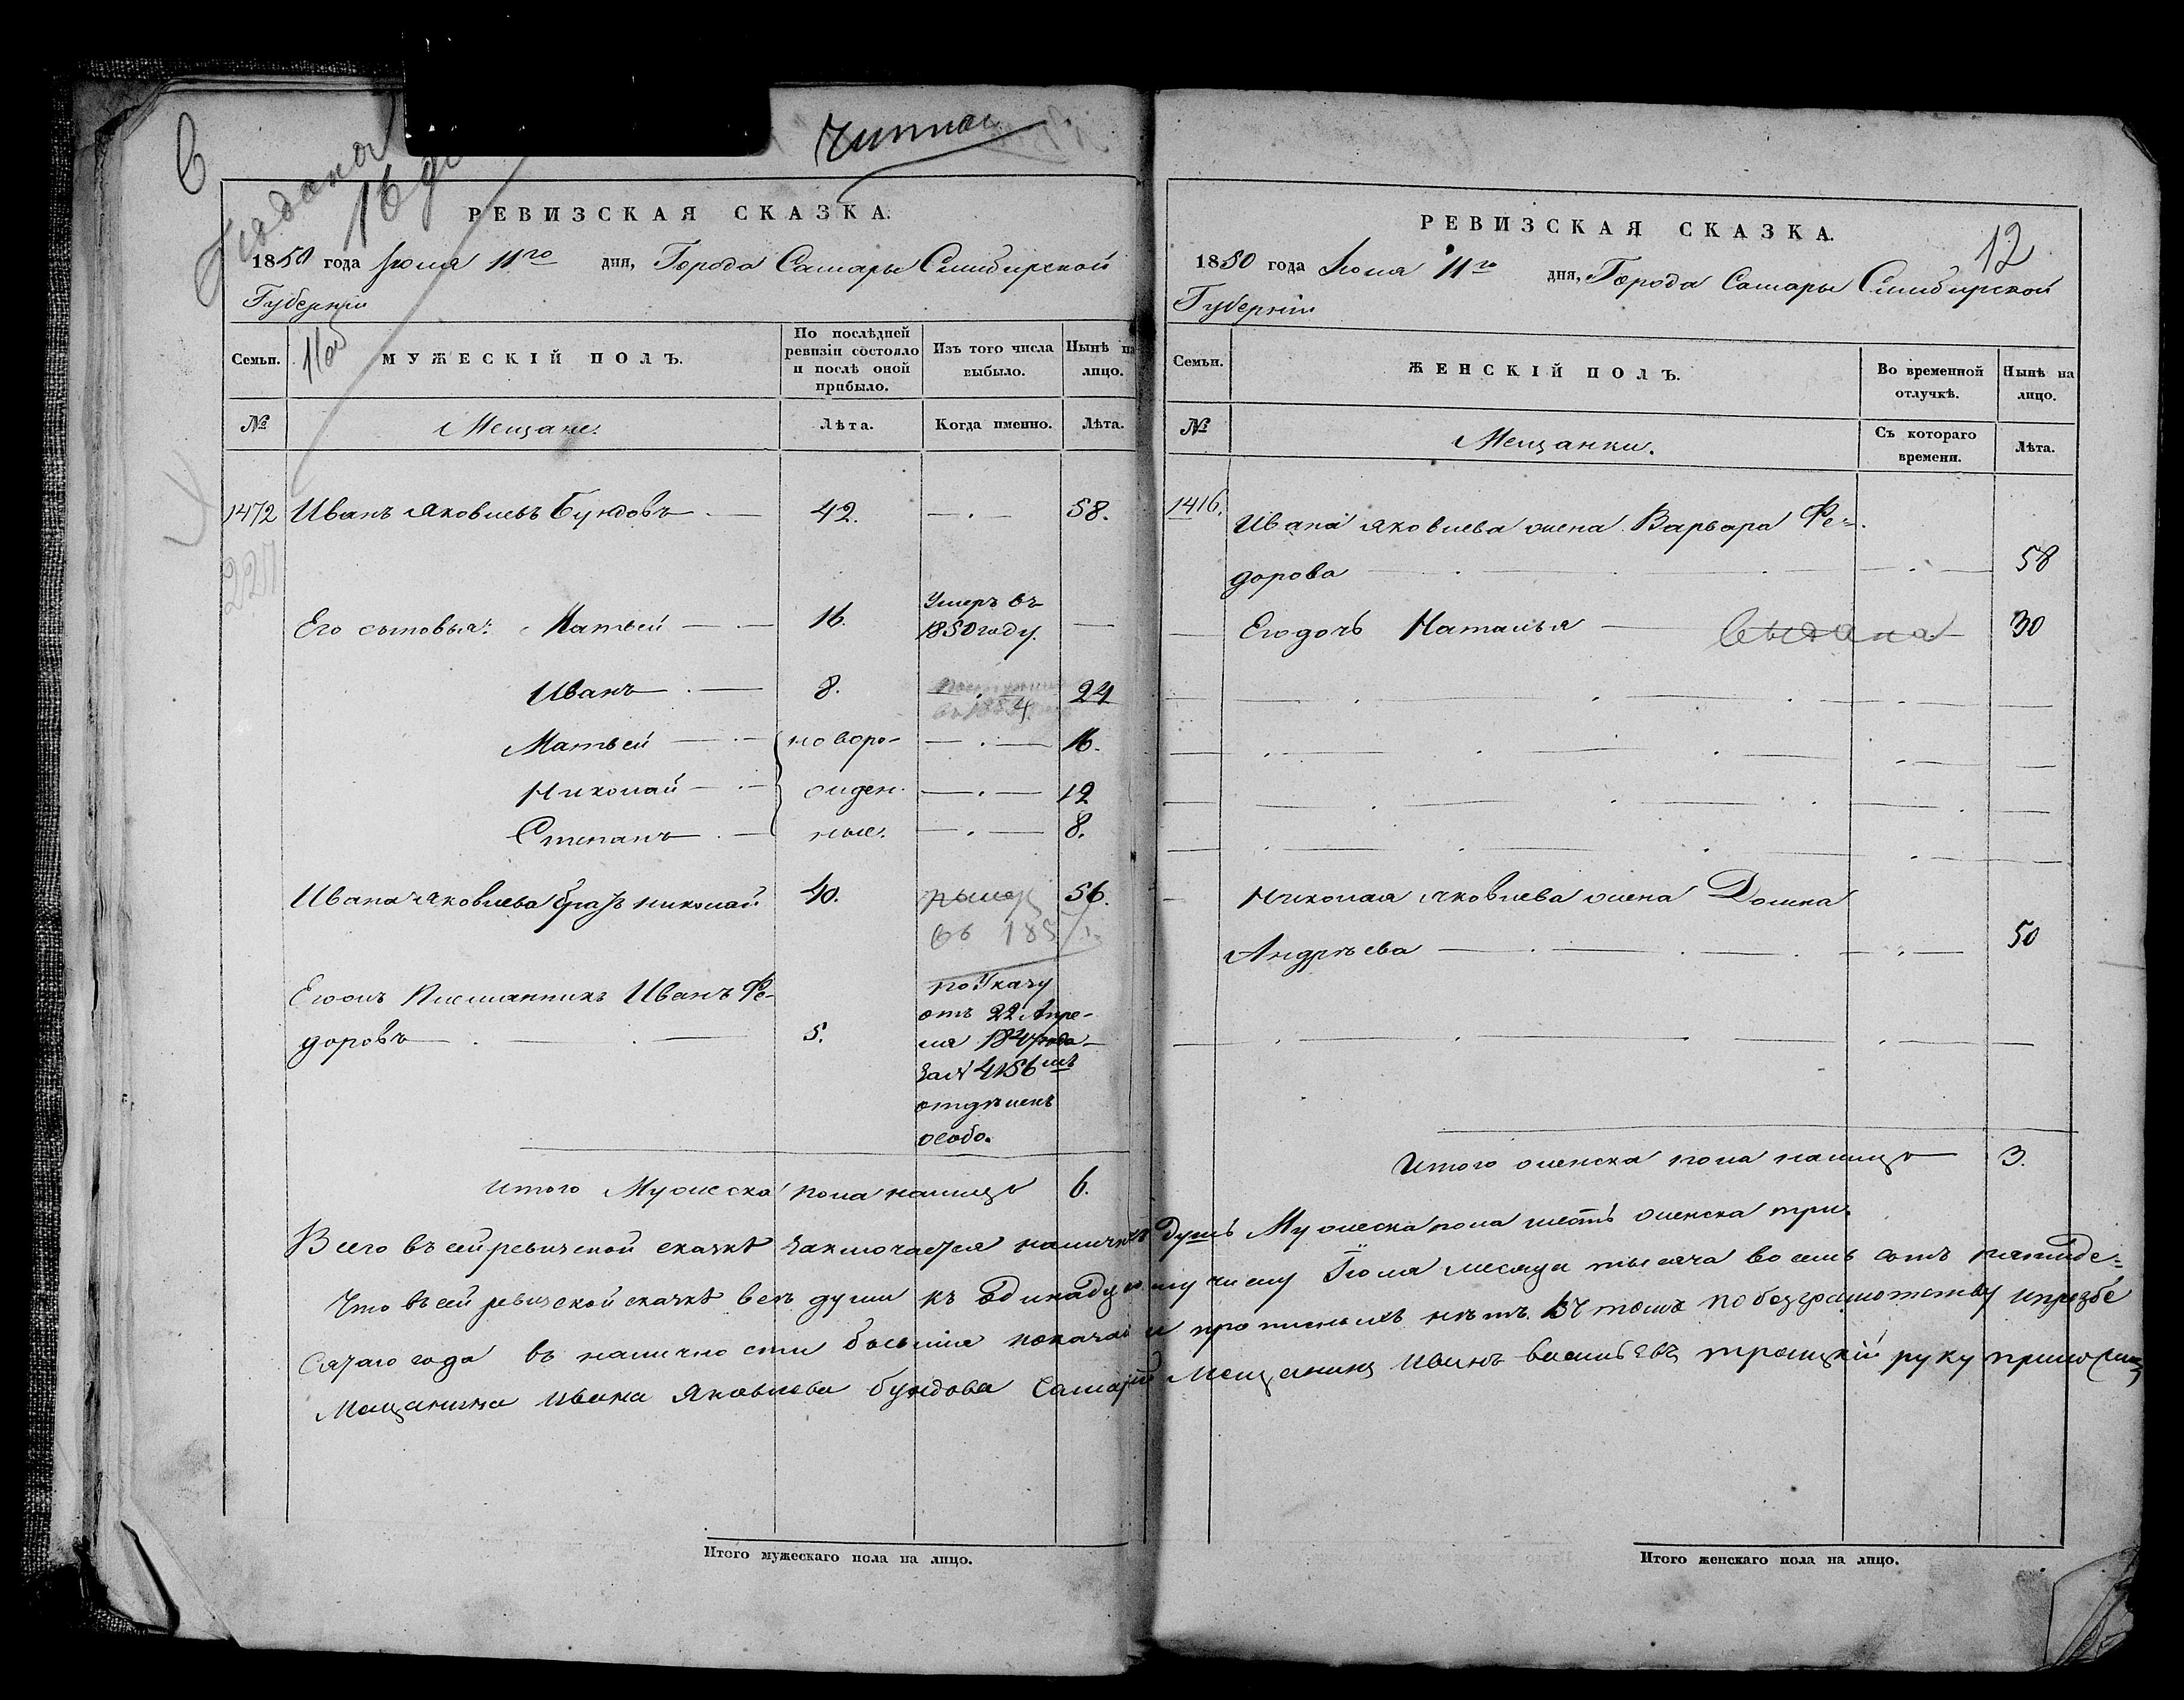 6
Подана
16
Читал
РЕВИЗСКАЯ СКАЗКА.
1850 года Іюля 11го дня, Города Самары Симбирской
Губерніи
Семьи.
МУЖЕСКІЙ ПОЛЪ.
По послѣдней ревизіи состояло и послѣ оной прибыло.
Изъ того числа выбыло.
Нынѣ на лицо.
№
Мещане.
Лѣта.
Когда именно.
Лѣта.
1472 Иванъ Яковлевъ Бундовъ 42. 58.
227
Его сыновья: Матвей 16. Умеръ въ 1850 году.
Иванъ 8. 24
Матвей новоро- 16.
Николай жден- 12
Степанъ ные. 8.
Ивана Яковлева братъ Николай 40. 56.
въ 185
Егожъ Племянникъ Иванъ Фе-
доровъ 5.
по Указу
отъ 22 Апре-
ля года
за № 4156мъ
отдѣленъ
особо.
Итого Мужеска пола налицо 6.
РЕВИЗСКАЯ СКАЗКА.
12
1850 года Іюля 11го дня, Города Самары Симбирской
Губерніи
Семьи.
ЖЕНСКІЙ ПОЛЪ.
Во временной отлучкѣ.
Нынѣ на лицо.
№
Мещанки.
Съ котораго времени.
Лѣта.
1416. Ивана Яковлева жена Варвара Фе-
дорова 58
Его дочь Наталья выдана 30
Николая Яковлева жена Домна
Андрѣева 50
Итого женска пола налицо 3.
Всего въ сей ревизской сказкѣ заключается наличныхъ душъ Мужеска пола шесть женска три.
Что въ сей ревизской сказкѣ всѣ души къ одинадцатому числу Іюля месяца тысяча восемь сотъ пятиде-
сятаго года въ наличности бывшіе показаны и прописныхъ нѣтъ. Въ томъ по безграмотству и прозбе
Мещанина Ивана Яковлева Бундова Самарій Мещанинъ Иванъ Васильевъ Троицкій руку приложилъ
Итого мужескаго пола на лицо.
Итого женскаго пола на лицо.